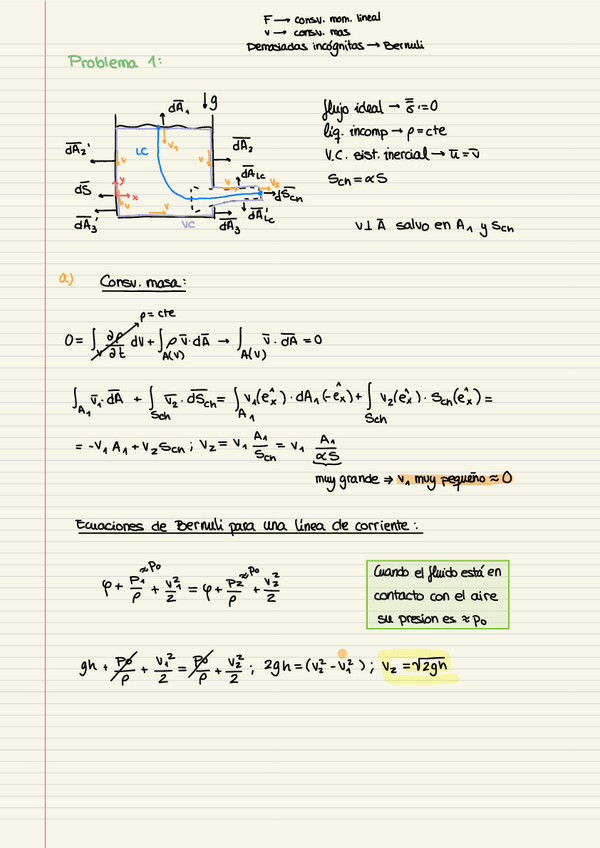 F → consv. mom. lineal
v → consv. mas
Demasiadas incógnitas → Bernuli
Problema 1:
dA̅₁ ↓g
dA̅₂' LC v₁ v v dA̅₂
dA̅LC
dS̅ y x v v v₂ dS̅ch
dA̅₃' v v VC dA̅₃ dA̅'LC
flujo ideal → σ̿' = 0
líq. incomp → ρ = cte
V.C. sist. inercial → u̅ = v̅
Sch = αS
v ⊥ A̅ salvo en A₁ y Sch
a) Consv. masa:
ρ = cte
0 = ∫V ∂ρ/∂t dV + ∫A(V) ρ v̅ · dA̅ → ∫A(V) v̅ · dA̅ = 0
∫A₁ v̅₁ · dA̅ + ∫Sch v̅₂ · dS̅ch = ∫A₁ v₁(êx) · dA₁(-êx) + ∫Sch v₂(êx) · Sch(êx) =
= -v₁ A₁ + v₂ Sch ; v₂ = v₁ A₁/Sch = v₁ A₁/αS
muy grande ⇒ v₁ muy pequeño ≈ 0
Ecuaciones de Bernuli para una línea de corriente :
≈ p₀ ≈ p₀
φ + p₁/ρ + v₁²/2 = φ + p₂/ρ + v₂²/2
Cuando el fluido está en
contacto con el aire
su presion es ≈ p₀
gh + p₀/ρ + v₁²/2 = p₀/ρ + v₂²/2 ; 2gh = (v₂² - v₁²) ; v₂ = √2gh